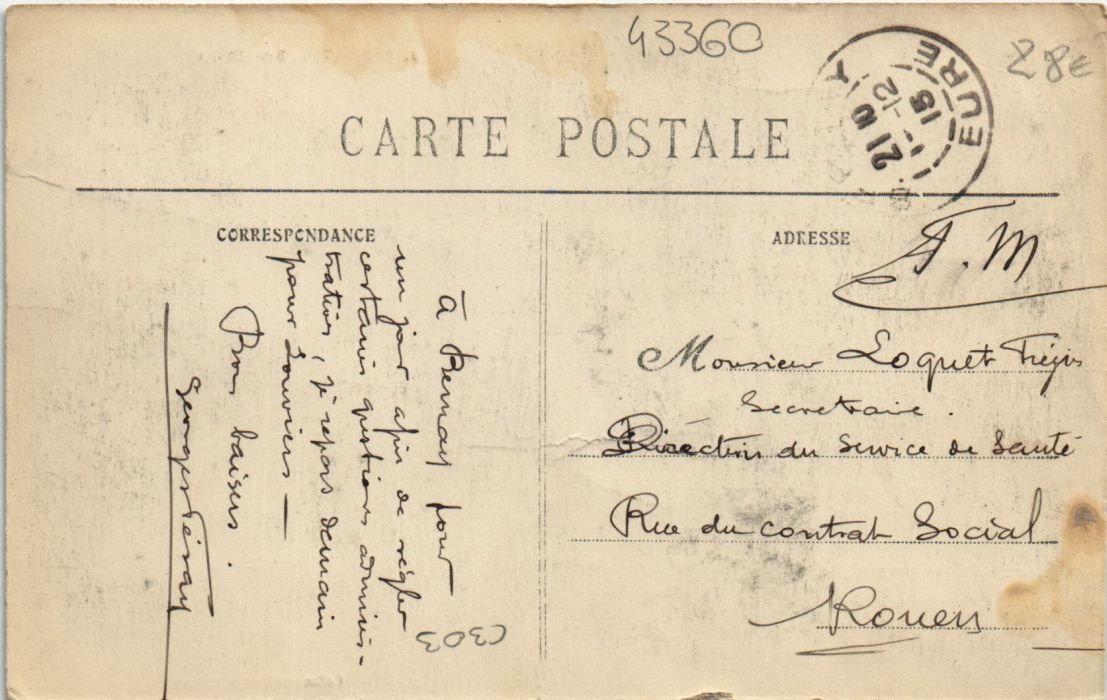 43360
28€
EURE
21 10
12
15
CARTE POSTALE
CORRESPONDANCE
ADRESSE
F. M
À Bernay pour
un jour afin de régler
certaines questions adminis-
tratives, je repars demain
pour Louviers —
Bons baisers.
Monsieur Loquet
Secretaire.
Direction du Service de Santé
Rue du contrat Social
Rouen
C303